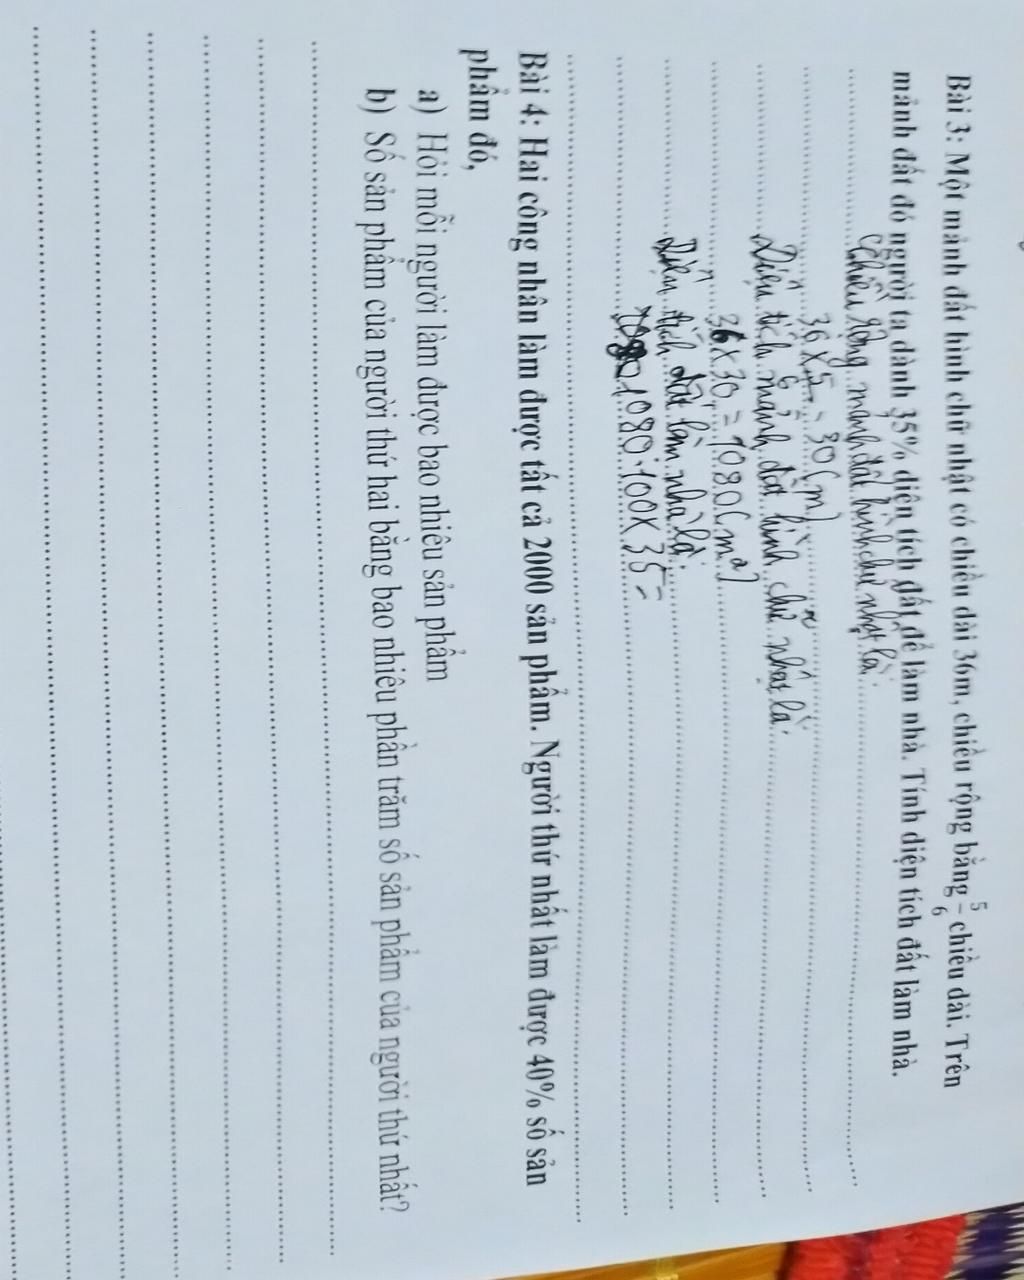 Bài 3: Một mảnh đất hình chữ nhật có chiều dài 36m, chiều rộng bằng 5/6 chiều dài. Trên
mảnh đất đó người ta dành 35% diện tích đất để làm nhà. Tính diện tích đất làm nhà.
Chiều rộng mảnh đất hình chữ nhật là:
36 x 5/6 = 30 (m)
Diện tích mảnh đất hình chữ nhật là:
36 x 30 = 1080 (m²)
Diện tích đất làm nhà là:
1080 : 100 x 35 =
Bài 4: Hai công nhân làm được tất cả 2000 sản phẩm. Người thứ nhất làm được 40% số sản
phẩm đó,
a) Hỏi mỗi người làm được bao nhiêu sản phẩm
b) Số sản phẩm của người thứ hai bằng bao nhiêu phần trăm số sản phẩm của người thứ nhất?